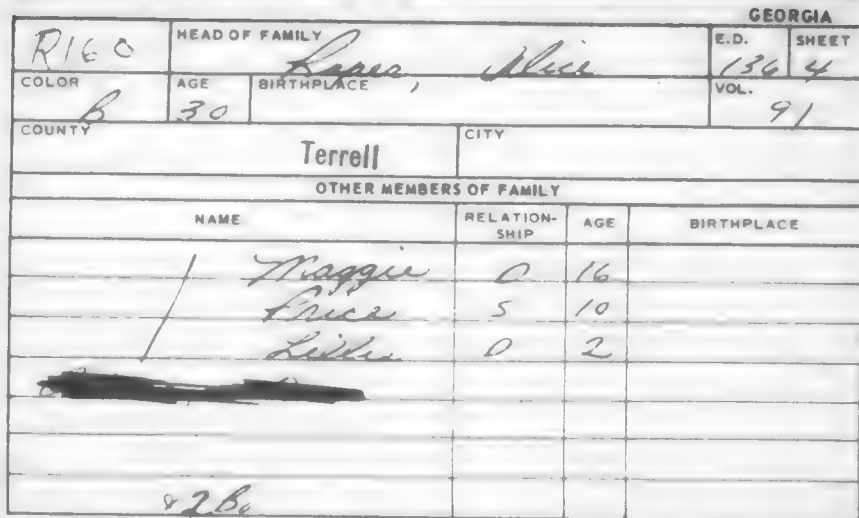 GEORGIA
R160
HEAD OF FAMILY
Roper, Alice
E.D.
136
SHEET
4
COLOR
B
AGE
30
BIRTHPLACE
VOL.
91
COUNTY
Terrell
CITY
OTHER MEMBERS OF FAMILY
NAME RELATION-SHIP AGE BIRTHPLACE
Maggie D 16
Price S 10
D 2
& 2 Bo